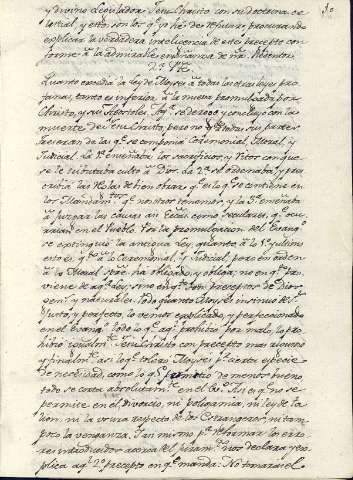 y divino Legislador Jesu Christo con su doctrina ce
lestial, y esto, son los qe he de tratar, procurando
explicar la verdadera inteligencia de este precepto con
forme a la admirable enseñanza de nro Maestro.
Quanto excedia la Ley de Moyses a todas las otras leyes pro
fanas, tanto es inferior a la nueva promulgada por
Christo, y sus Apostoles. se derogó, y concluyó con la
muerte de Jesu Christo, pero no todas sus partes.
Tres eran de las qe se componia Ceremonial, Moral, y
Judicial. La 1a enseñaba los sacrificios, y Ritos con que
se le tributaba culto a Dios. La 2a se ordenaba, y pres
cribia las Reglas de bien obrar qe es lo qe se contiene en
los Mandamtos qe nosotros tenemos, y la 3a enseñaba
a juzgar las causas asi Eccas como seculares, qe ocu
rrian en el Pueblo. Por la promulgacion del Evango
se extinguió la antigua Ley, quanto a lo 1o y ultimo
esto es qto a lo Ceremonial, y Judicial, pero en orden
a lo Moral ha obligado, y obliga, no en qto pro
viene de aqa Ley, sino en qto son preceptos de Dios,
y naturales. Todo quanto Moyses insinuó de
justo, y perfecto, lo vemos explicado, y perfeccionado
en el Evango todo lo qe aql prohibió por malo, lo pro
hibió igualmte Jesu Christo con precepto mas riguroso
y finalmte asi lo qe toleró Moyses pr cierta especie
de necesidad, como lo qe permitió de menos bueno
todo se corta absolutamte en el Evo Asi es qe no se
permite en el Divorcio, ni poligamia, ni ley de Ta
lion, ni la usura respecto de los Estrangeros, ni tam
poco la venganza. Y asi mismo pa reformar los erro
res introducidos acerca del juramto nos declara, y ex
plica aql 2o precepto en qe manda: No tomaras el